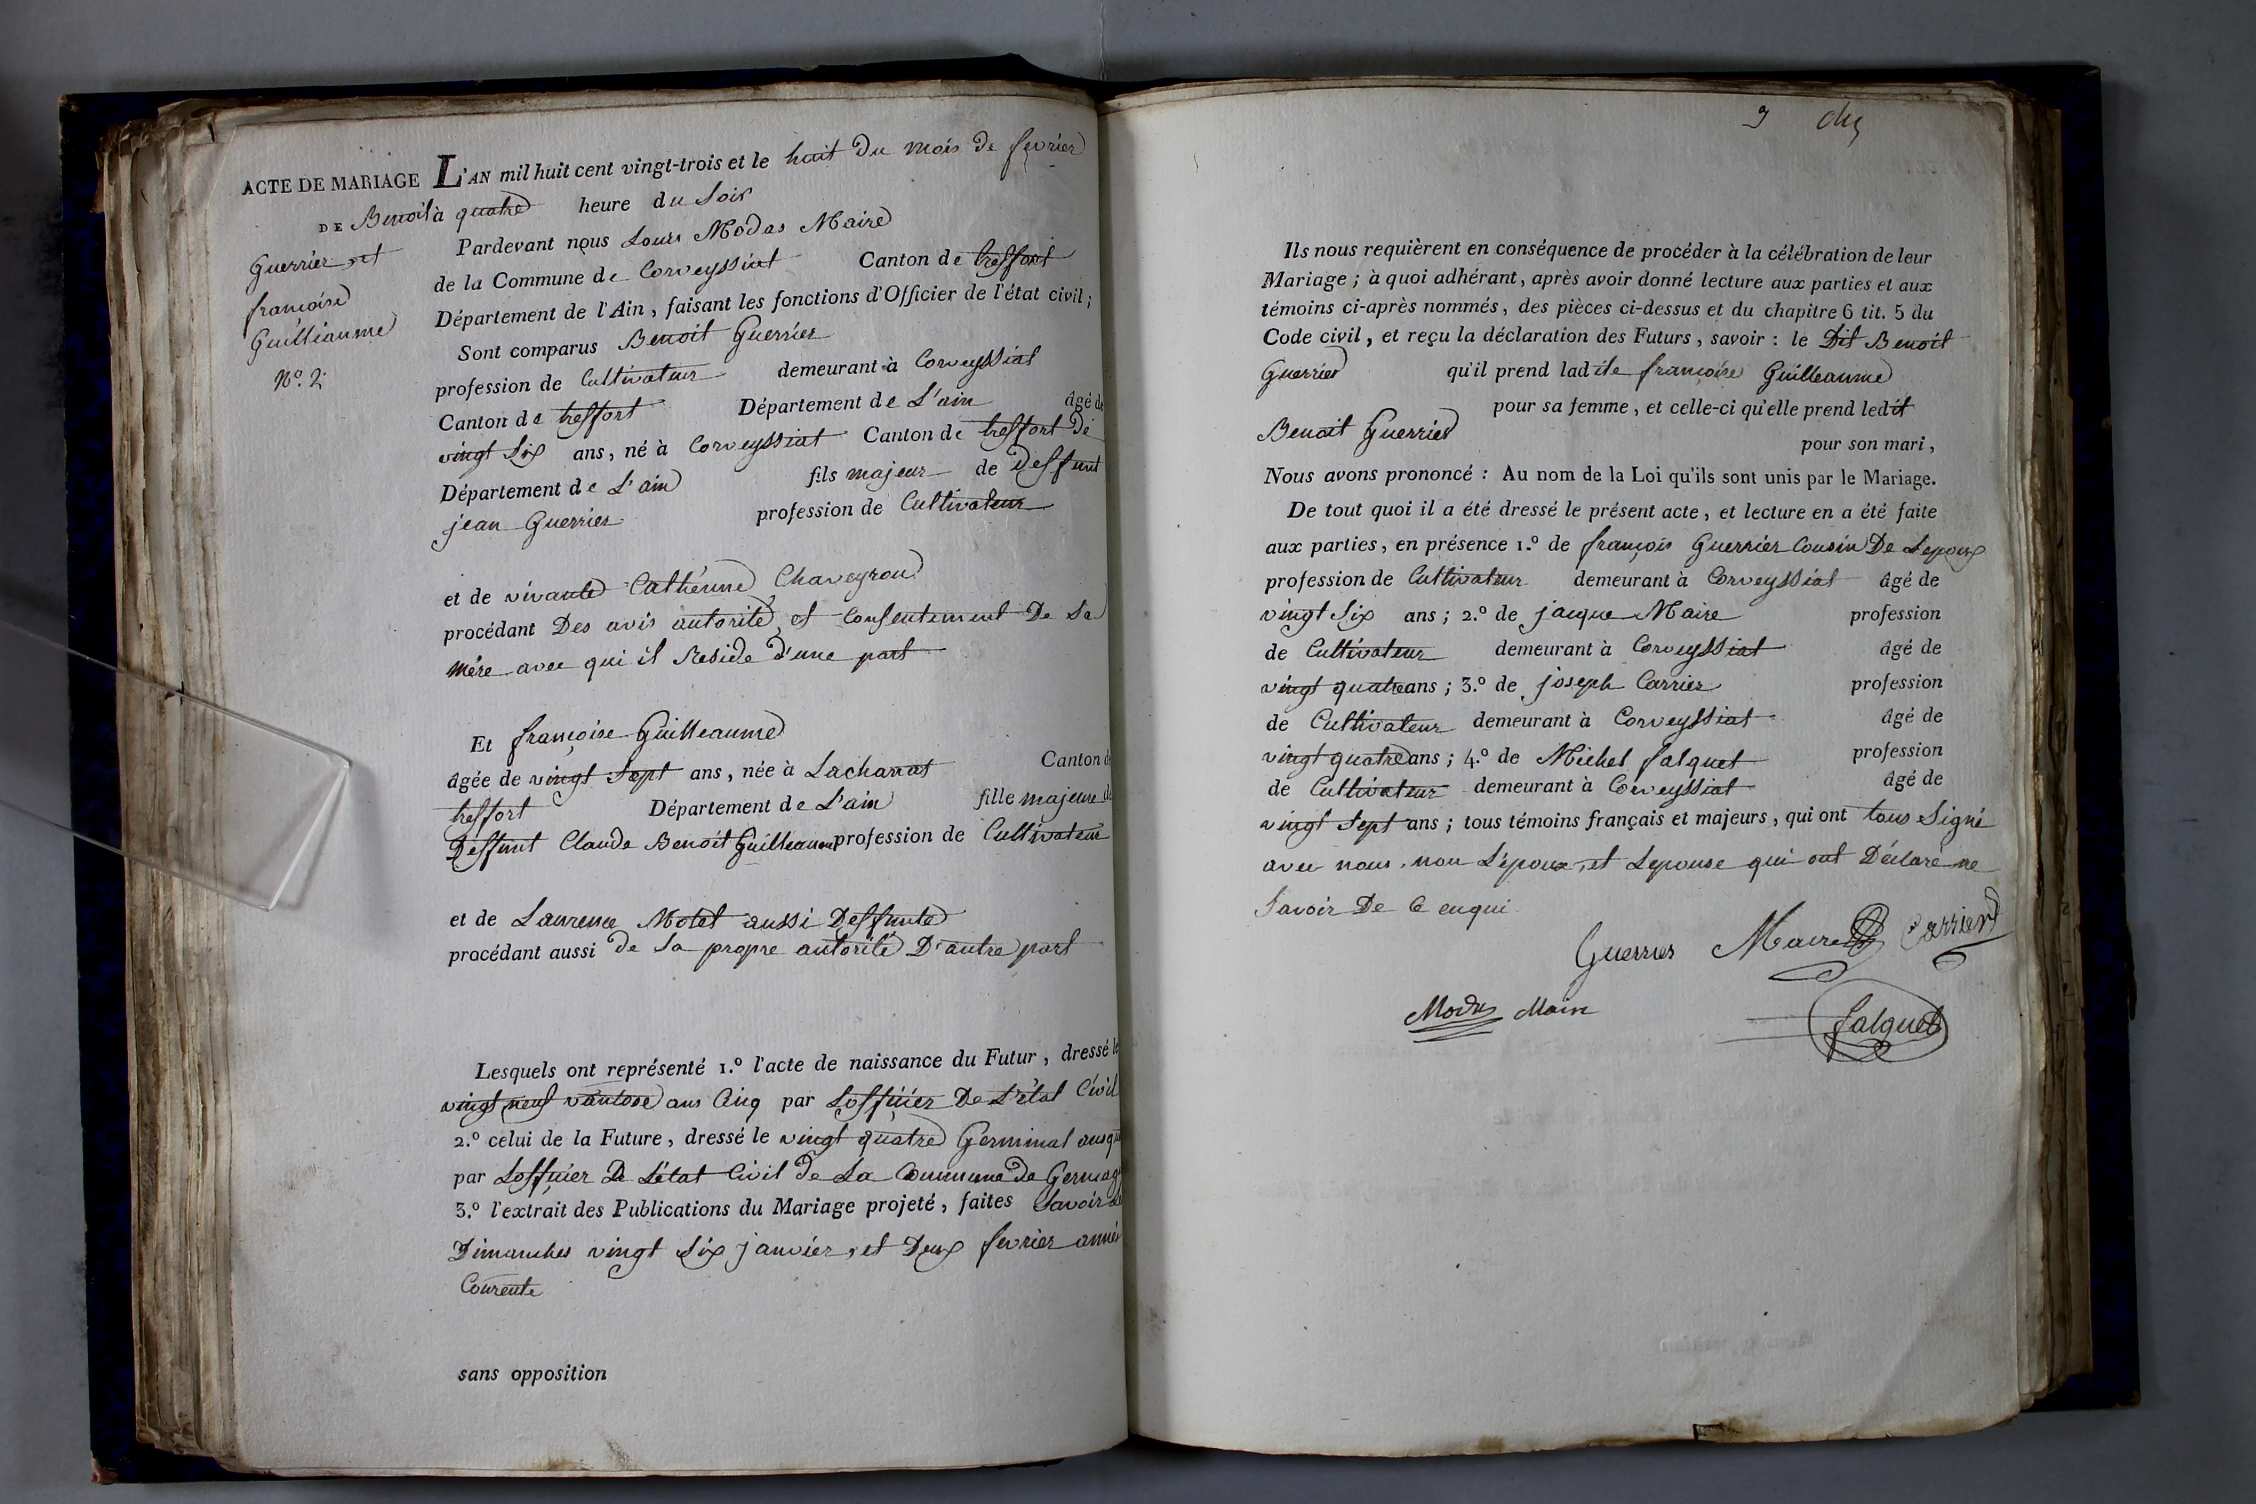 ACTE DE MARIAGE L'AN mil huit cent vingt-trois et le huit du mois de fevrier
DE Benoit à quatre heure du soir
Guerrier et
françoise
Guilliaume
N.º 2
Pardevant nous Louis Modas Maire
de la Commune de Corveyssiat Canton de treffort
Département de l'Ain, faisant les fonctions d'Officier de l'état civil;
Sont comparus Benoit Guerrier
profession de Cultivateur demeurant à Corveyssiat
Canton de treffort Département de L'ain âgé de
vingt six ans, né à Corveyssiat Canton de treffort De
Département de L'ain fils majeur de deffunt
jean Guerrier profession de Cultivateur
et de vivante Cathérinne Chaveyron
procédant Des avis autorité et Consentement De Sa
mére avec qui il Reside d'une part
Et françoise Guilleaume
âgée de vingt Sept ans, née à Lacharnat Canton de
treffort Département de L'ain fille majeure de
Deffunt Claude Benoit Guilleaume profession de Cultivateur
et de Laurence Motet aussi Deffunte
procédant aussi de Sa propre autorité D'autre part
Lesquels ont représenté 1.º l'acte de naissance du Futur, dressé le
vingt neuf vantose ans Cinq par Loffiçier De L'état Civil
2.º celui de la Future, dressé le vingt quatre Germinal ans
par Loffiçier De L'état Civil de La Commune de
3.º l'extrait des Publications du Mariage projeté, faites Savoir
Dimanches vingt six janvier, et Deux fevrier année
Courente
sans opposition
9
Ils nous requièrent en conséquence de procéder à la célébration de leur
Mariage; à quoi adhérant, après avoir donné lecture aux parties et aux
témoins ci-après nommés, des pièces ci-dessus et du chapitre 6 tit. 5 du
Code civil, et reçu la déclaration des Futurs, savoir: le Dit Benoit
Guerrier qu'il prend ladite françoise Guilleaume
pour sa femme, et celle-ci qu'elle prend ledit
Benoit Guerrier
pour son mari,
Nous avons prononcé: Au nom de la Loi qu'ils sont unis par le Mariage.
De tout quoi il a été dressé le présent acte, et lecture en a été faite
aux parties, en présence 1.º de françois Guerrier Cousin De Lepoux
profession de Cultivateur demeurant à Corveyssiat âgé de
vingt six ans; 2.º de jacque Maire profession
de Cultivateur demeurant à Corveyssiat âgé de
vingt quatre ans; 3.º de joseph Carrier profession
de Cultivateur demeurant à Corveyssiat âgé de
vingt quatre ans; 4.º de Michel falquet profession
de Cultivateur demeurant à Corveyssiat âgé de
vingt Sept ans; tous témoins français et majeurs, qui ont tous Signé
avec nous, non L'époux, et Lepouse qui ont Déclaré ne
Savoir De Ce enqui
Guerrier Maire Carrier
Modas Maire
falquet